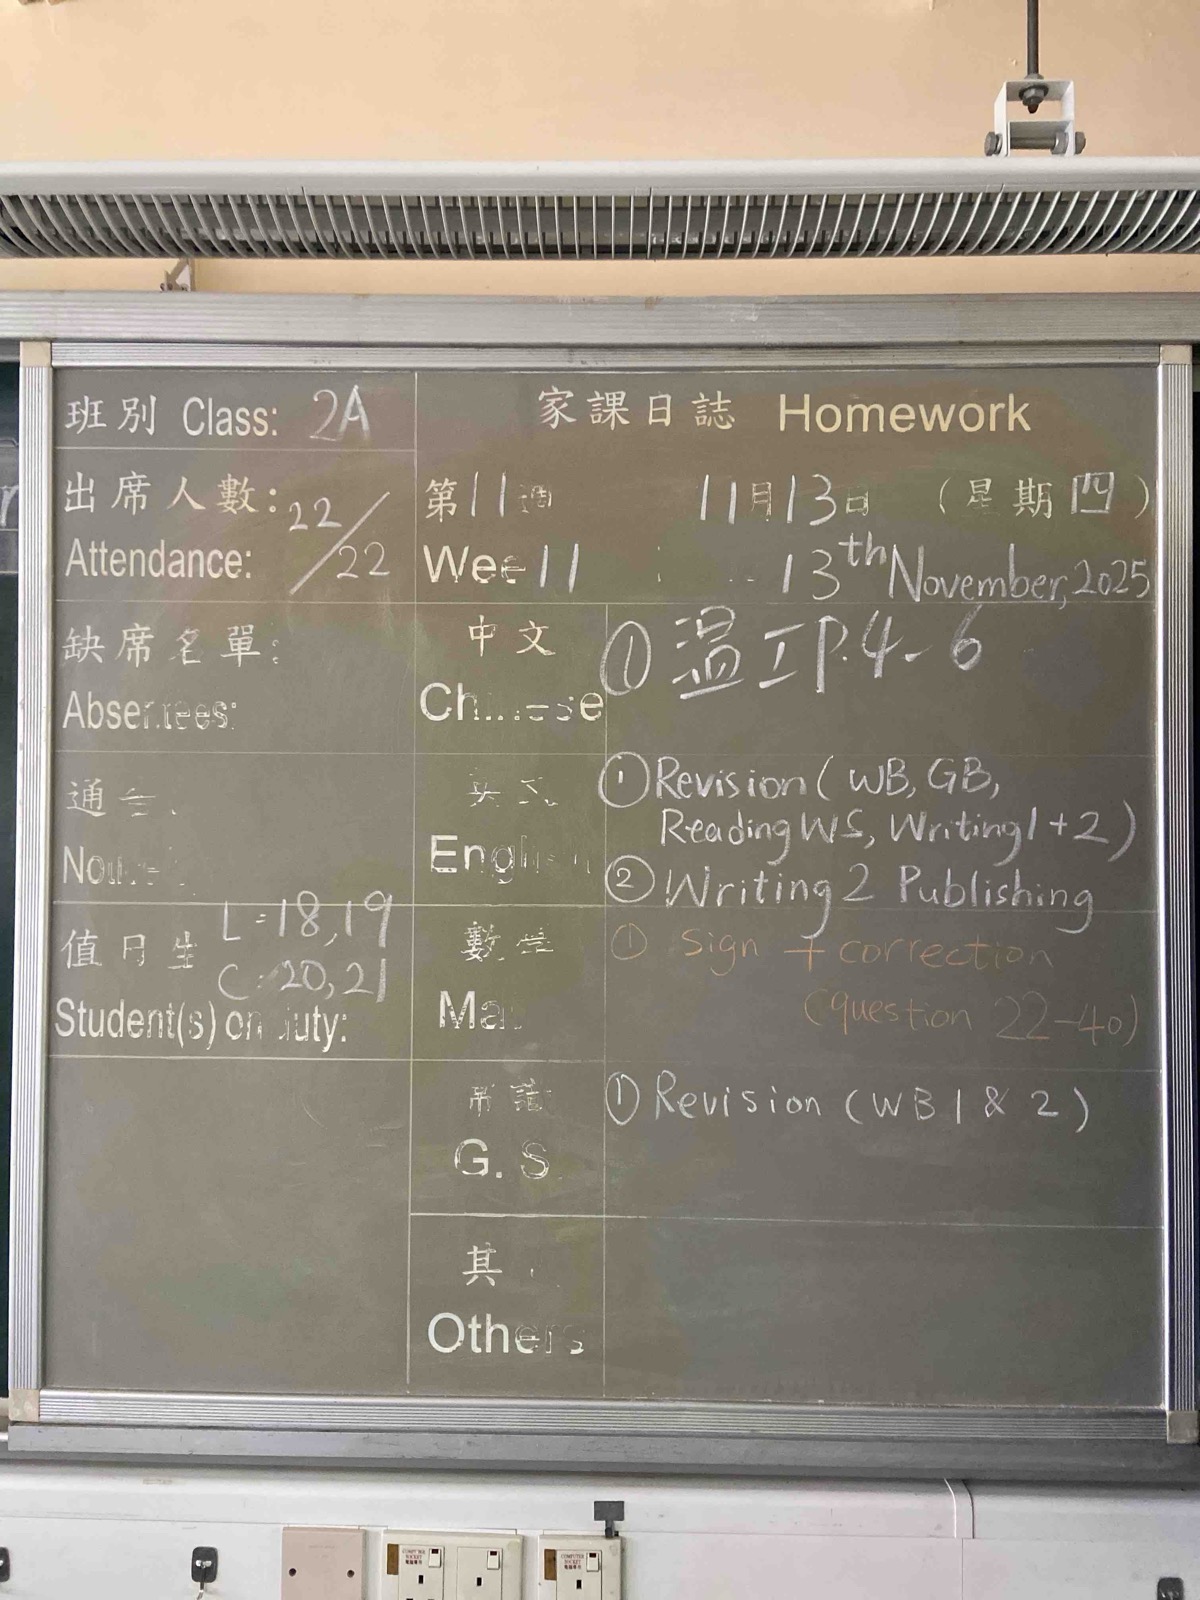 班別 Class: 2A
家課日誌 Homework
出席人數: 22/22
Attendance:
第11週 11月13日 (星期四)
Wee 11 13th November, 2025
缺席名單:
Absentees:
中文
Chinese
① 溫工P.4-6
通告
英文
English
① Revision (WB, GB,
Reading WS, Writing 1+2)
② Writing 2 Publishing
值日生 L=18,19
C:20,21
Student(s) on duty:
數學
Ma
① Sign + correction
(question 22-40)
常識
G. S
① Revision (WB 1 & 2)
其
Others
COMPUTER SOCKET
COMPUTER SOCKET